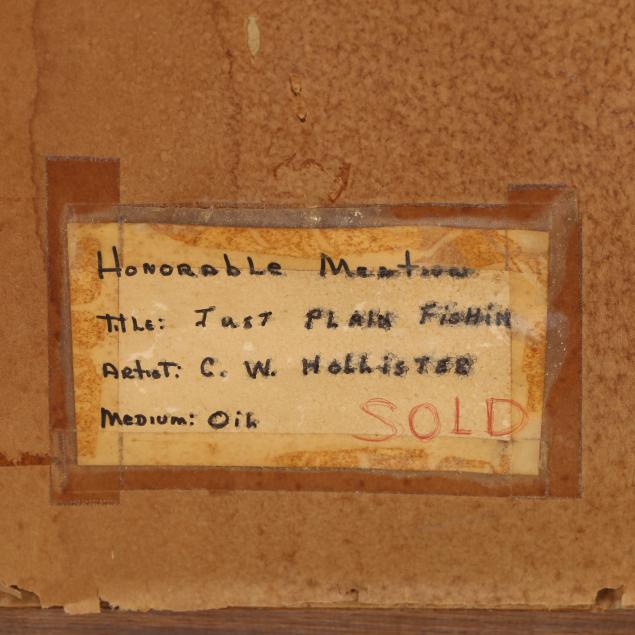 Honorable Mention
Title: Just Plain Fishin
Artist: C. W. Hollister
Medium: Oil
SOLD